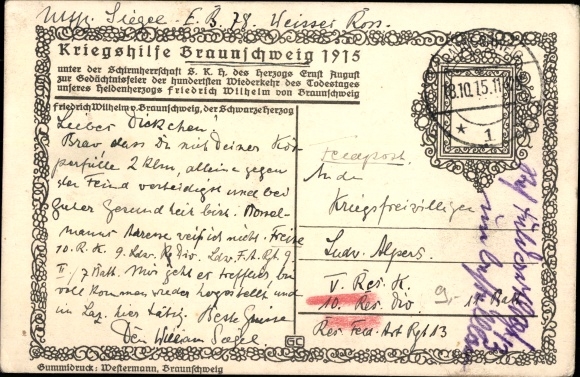 Uffz. Siegel E. B. 78. Weisses Ross
Kriegshilfe Braunschweig 1915
unter der Schirmherrschaft S. K. H. des Herzogs Ernst August
zur Gedächtnisfeier der hundertsten Wiederkehr des Todestages
unseres Heldenherzogs Friedrich Wilhelm von Braunschweig
Friedrich Wilhelm v. Braunschweig, der Schwarze Herzog
18.10.15.11
* 1
Lieber Dickchen!
Brav dass Du mit Deiner Kör
perfülle 2 klm, alleine gegen
den Feind verteidigst und bei
guter Gesundheit bist.
manns Adresse weiß ich nicht. Freise
10. R. K. 9. Ldw. Div. Ldw. F. A. Rgt. 9
II, 7 Batt. Mir geht es trefflich, bin
vollkommen wieder hergestellt und
im Laz. hier tätig. Beste Grüsse
Dein William Siegel.
Feldpost.
An den
Kriegsfreiwilligen
Ludw. Alpers.
V. Res. K.
10. Res. Div 9. Batt.
Res. Feld. Art Rgt 13
GC
Gummidruck: Westermann, Braunschweig